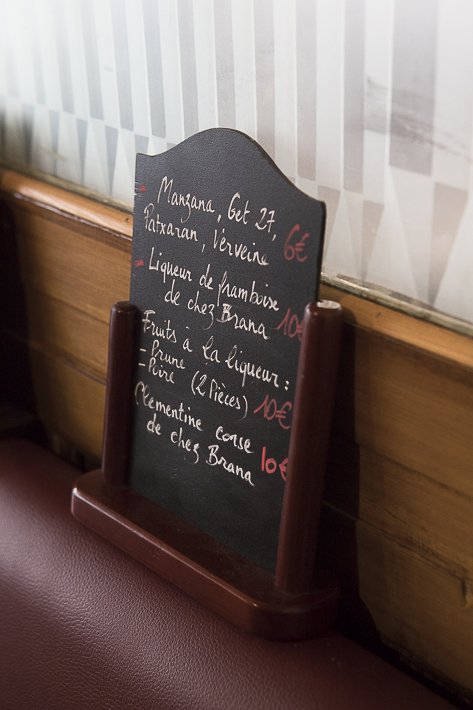 Manzana, Get 27,
Patxaran, Verveine 6€
Liqueur de framboise
de chez Brana 10€
Fruits à la liqueur :
- Prune
- Poire (2 Pièces) 10€
Clémentine corse
de chez Brana 10€